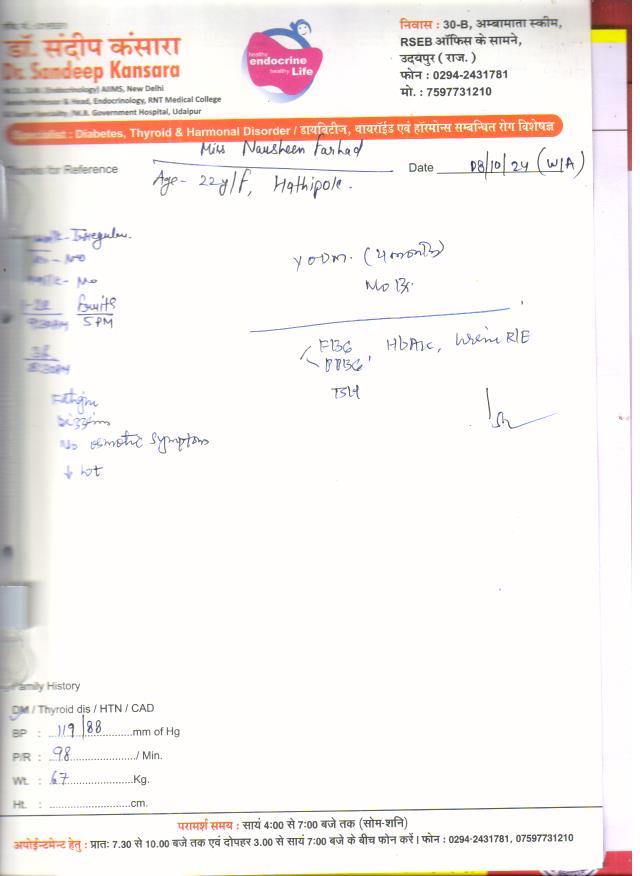 डॉ. संदीप कंसारा
Dr. Sandeep Kansara
AIIMS, New Delhi
& Head, Endocrinology, RNT Medical College
M.B. Government Hospital, Udaipur
healthy
endocrine
healthy Life
निवास : 30-B, अम्बामाता स्कीम,
RSEB ऑफिस के सामने,
उदयपुर ( राज. )
फोन : 0294-2431781
मो. : 7597731210
Specialist : Diabetes, Thyroid & Harmonal Disorder / डायबिटीज, थायरॉईड एवं हॉरमोन्स सम्बन्धित रोग विशेषज्ञ
Miss Nausheen Farhad
Thanks for Reference
Date 08/10/24 (W/A)
Age- 22y/F, Hathipole.
Irregular.
- No
- No
Fruits
9:30AM 5PM
8:30PM
YODM. (4 months)
No Rx.
FBG
PPBG, HbA1c, Urine R/E
TSH
Fatigue
Dizziness
No osmotic symptoms
↓ wt
Family History
DM / Thyroid dis / HTN / CAD
BP : 119/88 mm of Hg
P/R : 98 / Min.
Wt. : 67 Kg.
Ht. : cm.
परामर्श समय : सायं 4:00 से 7:00 बजे तक (सोम-शनि)
अपोईन्टमेन्ट हेतु : प्रातः 7.30 से 10.00 बजे तक एवं दोपहर 3.00 से सायं 7:00 बजे के बीच फोन करें । फोन : 0294-2431781, 07597731210